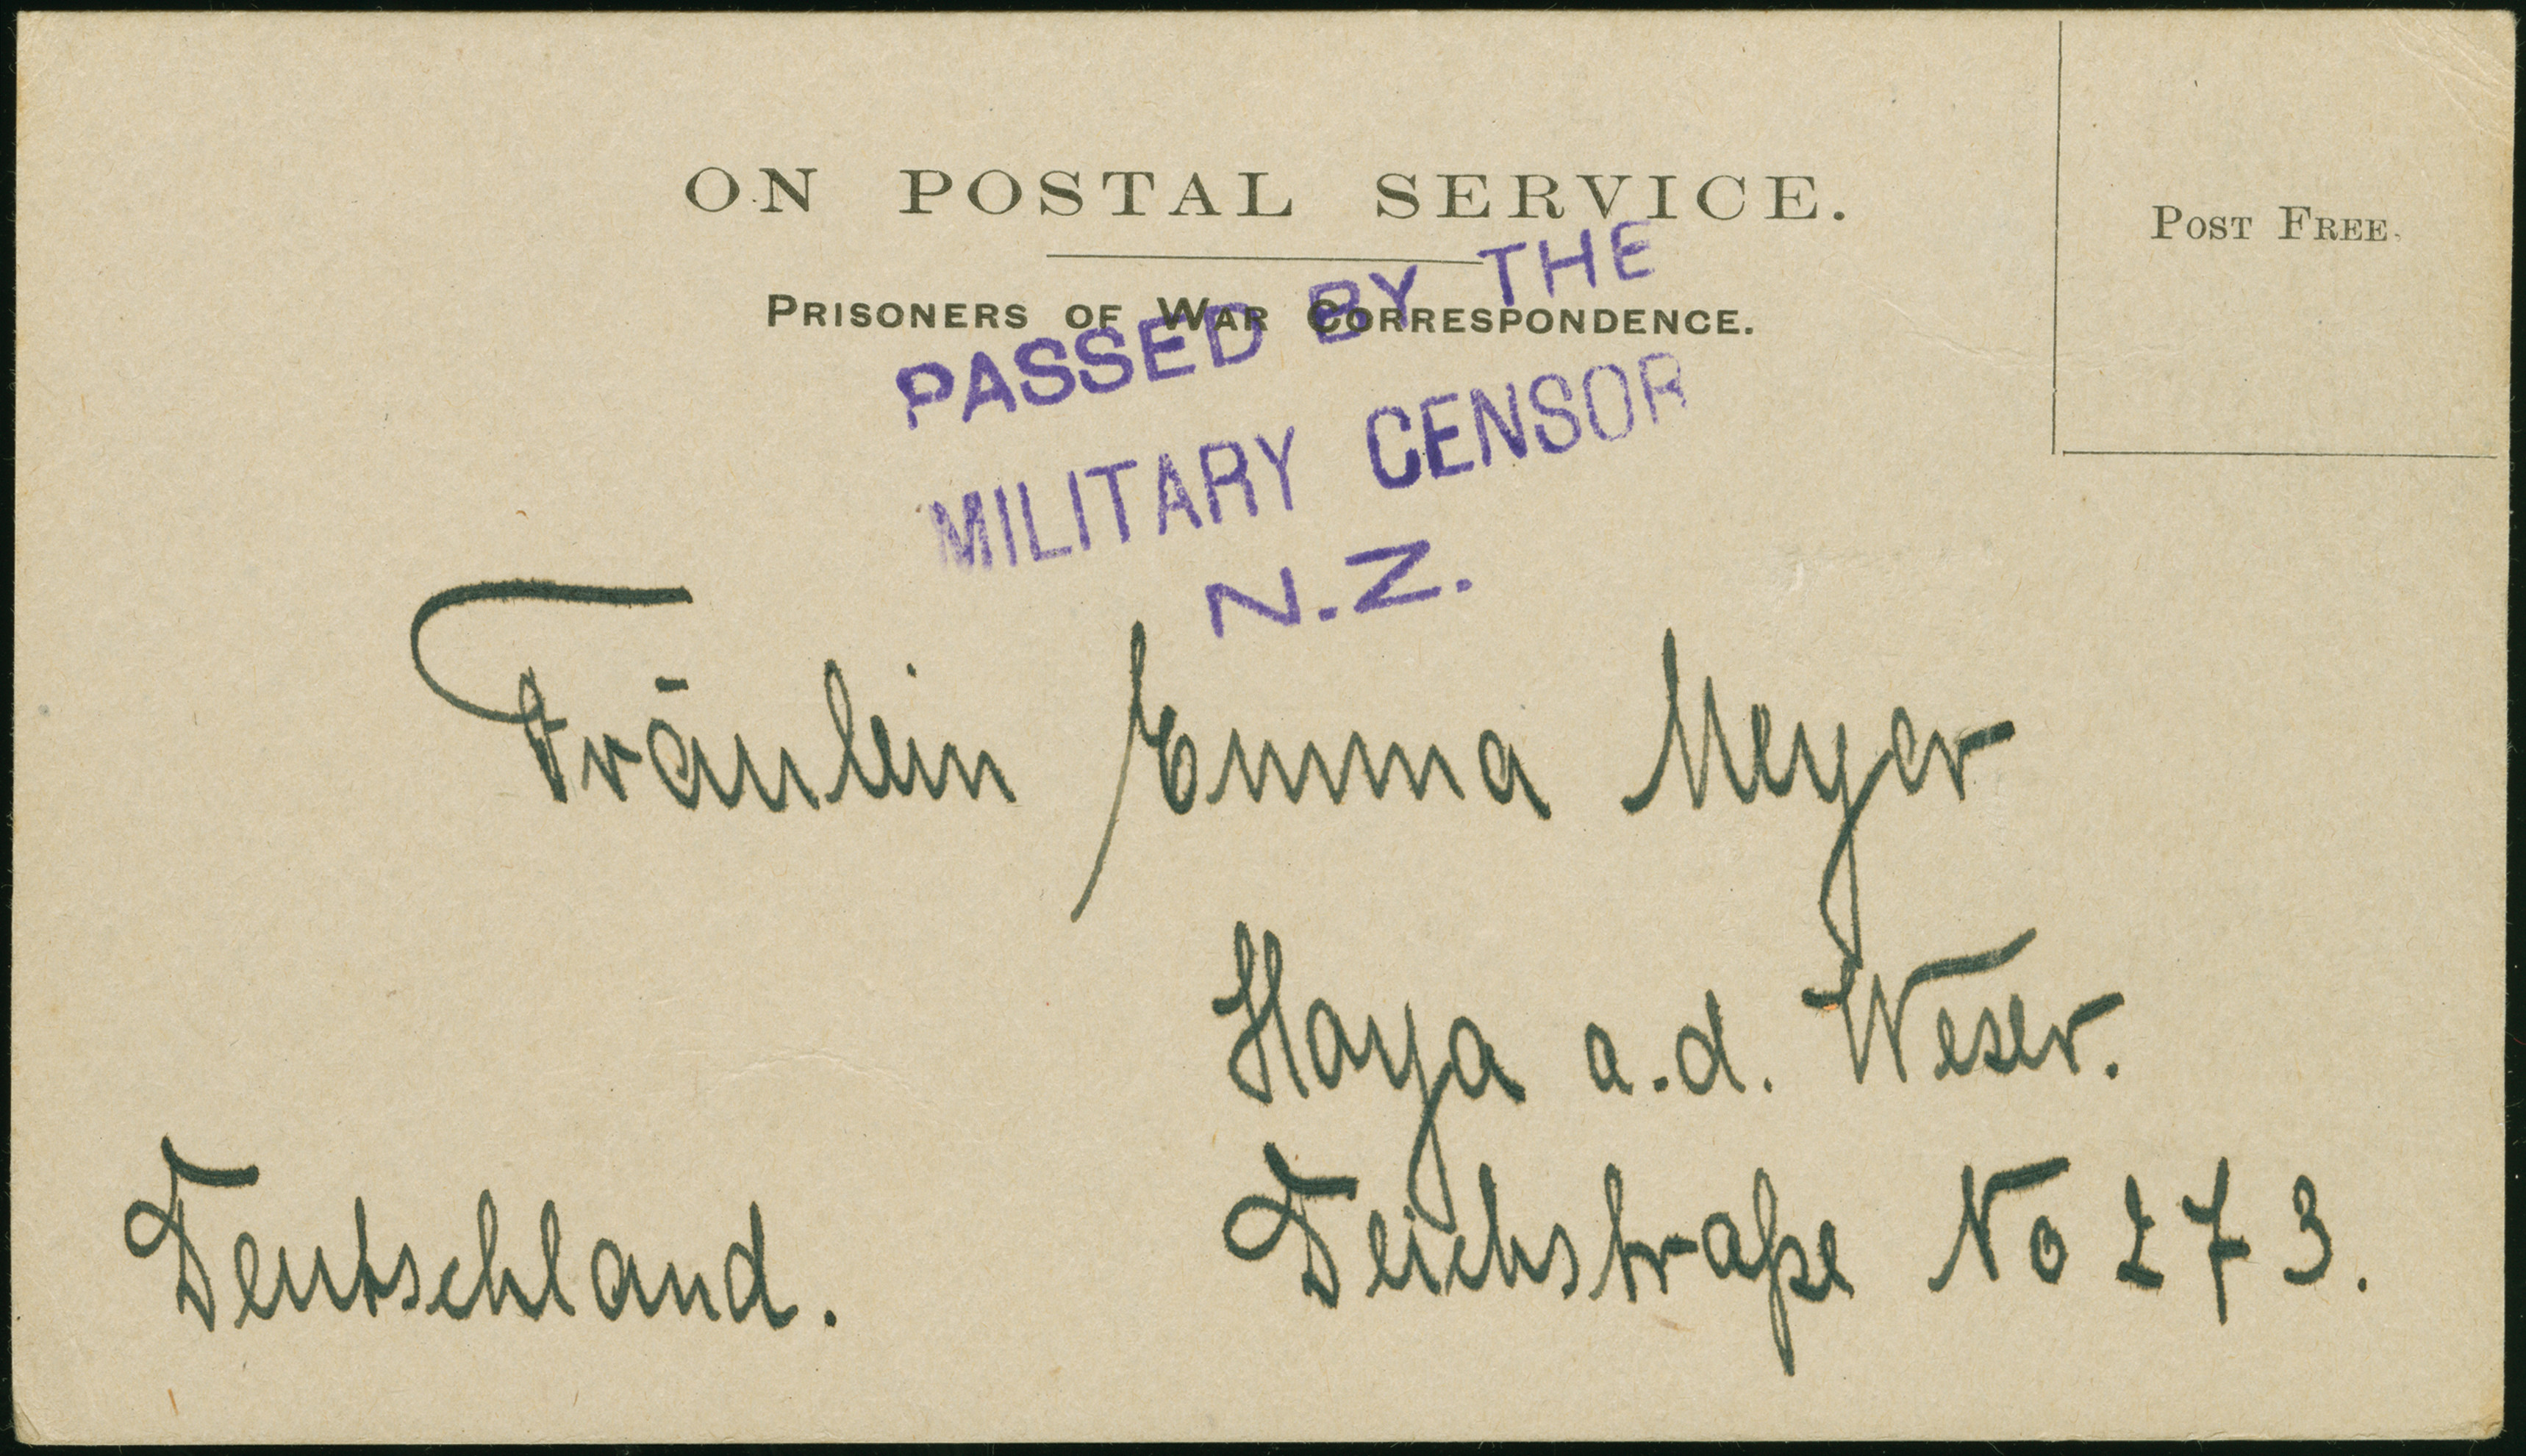 ON POSTAL SERVICE.
POST FREE.
PRISONERS OF WAR CORRESPONDENCE.
PASSED BY THE
MILITARY CENSOR
N.Z.
Fräulein Emma Meyer
Hoya a.d. Weser.
Deichstraße No 273.
Deutschland.